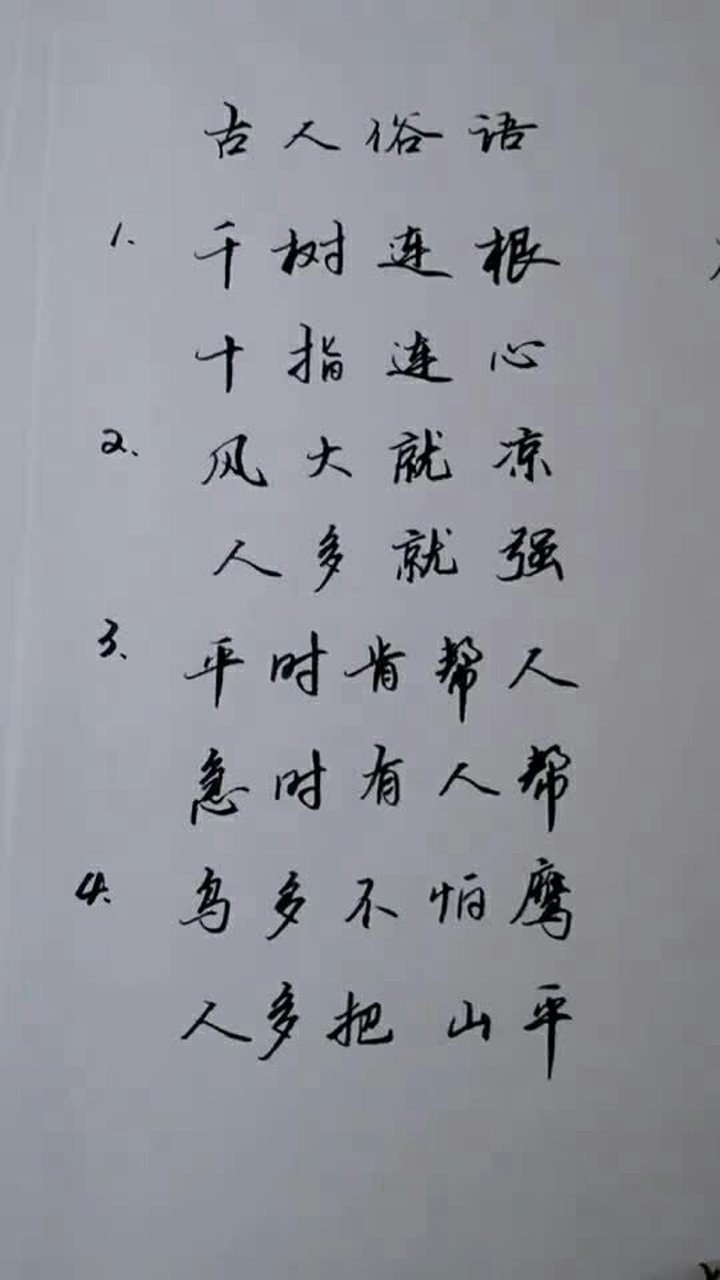 古人俗语
1. 千树连根
十指连心
2. 风大就凉
人多就强
3. 平时肯帮人
急时有人帮
4. 鸟多不怕鹰
人多把山平